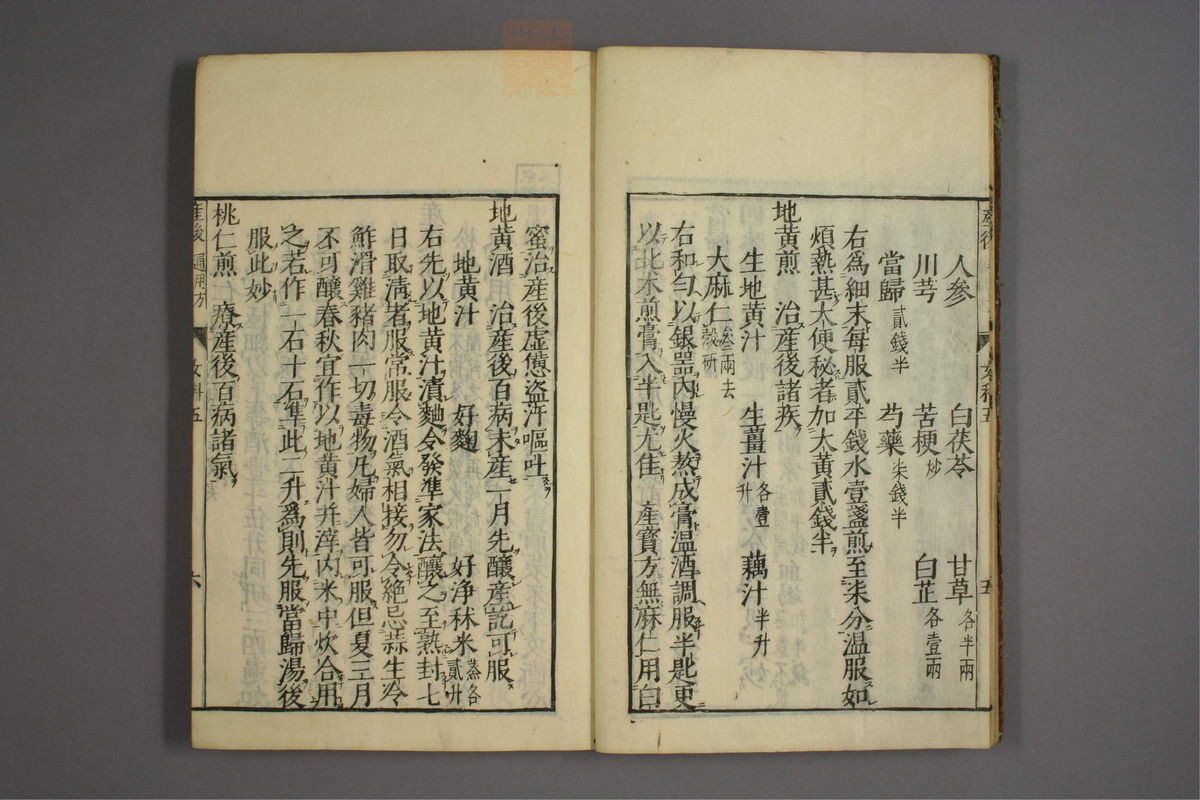 人參　白茯苓　甘草各半兩
川芎　苦梗炒　白芷各壹兩
當歸貳錢半　芍藥柒錢半
右爲細末每服貳平錢水壹盞煎至柒分温服如
煩熱甚大便秘者加大黃貳錢半
地黃煎　治產後諸疾
生地黃汁　生薑汁各壹升　藕汁半升
大麻仁叁兩去殼研
右和勻以銀器內慢火熬成膏温酒調服半匙更
以北朮煎膏入半匙尤佳　產寶方無麻仁用白
蜜治產後虛憊盜汗嘔吐
地黃酒　治產後百病未產一月先釀產訖可服
地黃汁　好麴　好浄秫米蒸各貳升
右先以地黃汁漬麯令發準家法釀之至熟封七
日取清者服常服令酒氣相接勿令絶忌蒜生冷
鮓滑雞豬肉一切毒物凡婦人皆可服但夏三月
不可釀春秋宜作以地黃汁并滓内米中炊合用
之若作一石十石準此二升爲則先服當歸湯後
服此妙
桃仁煎　療產後百病諸氣
產後　通用方　女科五　六
產後　女科五　五